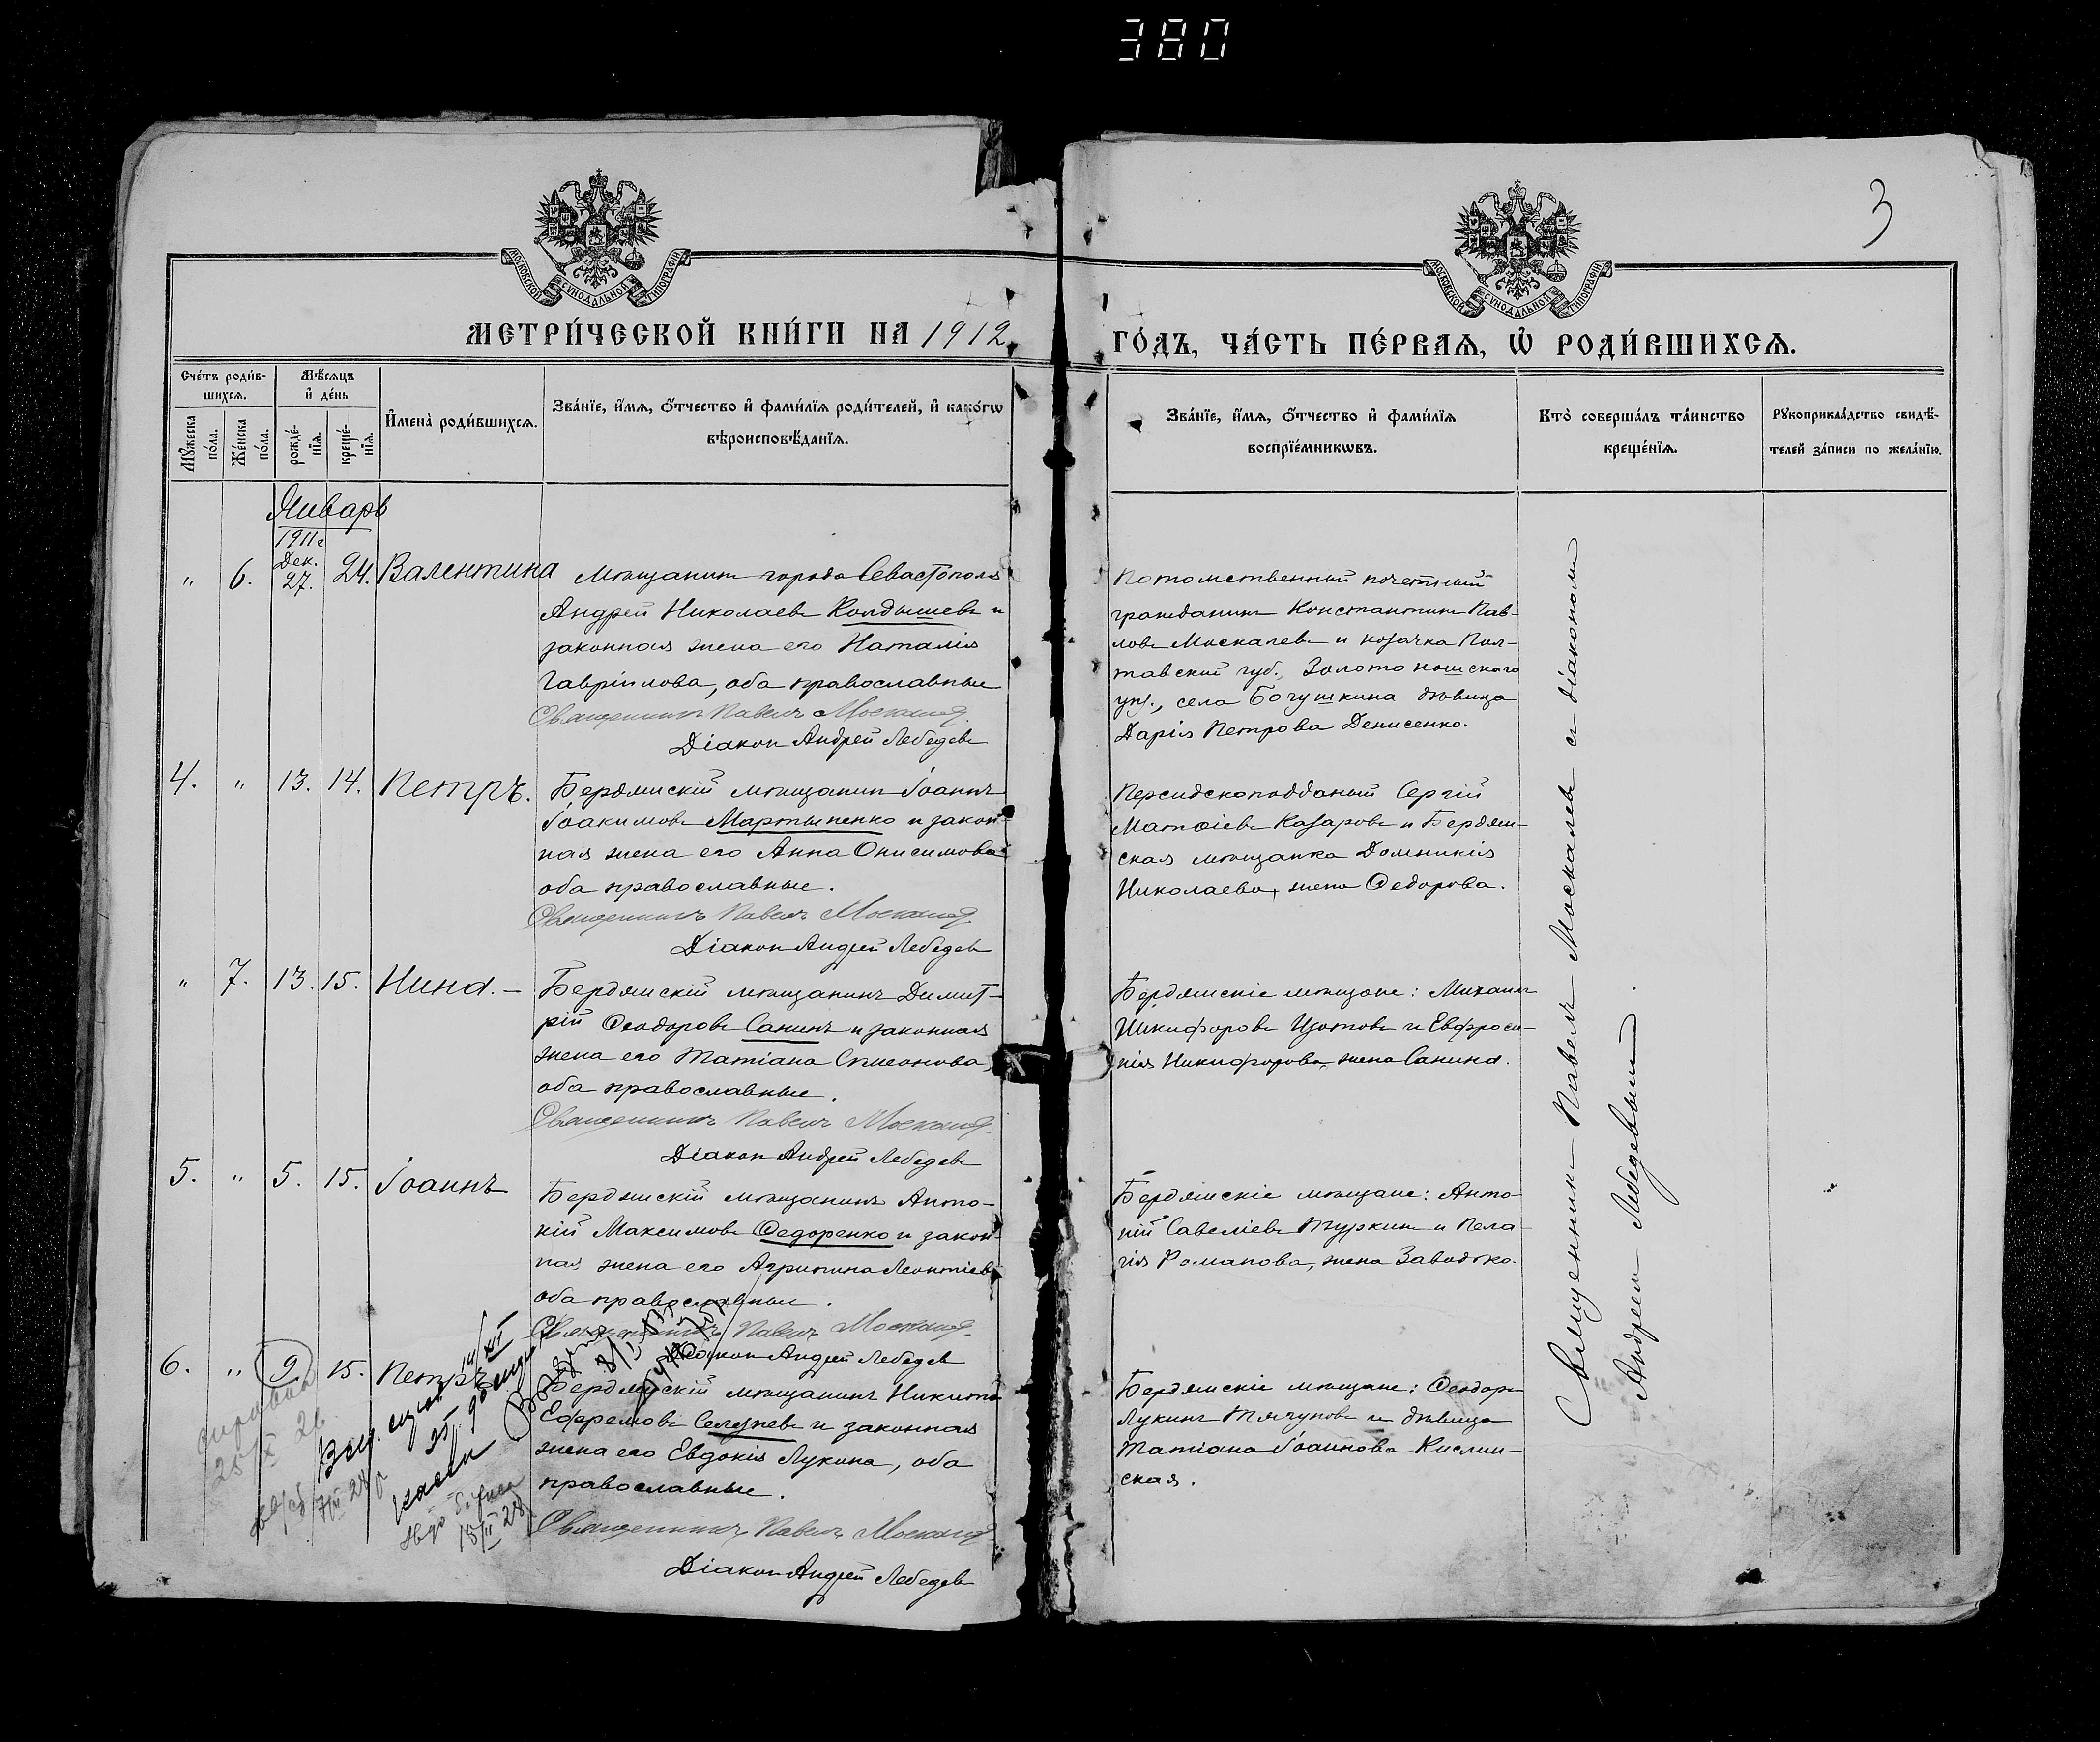 380
3
МОСКОВСКОЙ СѴНОДАЛЬНОЙ ТИПОГРАФІИ
МОСКОВСКОЙ СѴНОДАЛЬНОЙ ТИПОГРАФІИ
МЕТРИ́ЧЕСКОЙ КНИ́ГИ НА 1912
ГО́ДЪ, ЧА́СТЬ ПЕ́РВАЯ, Ѡ РОДИ́ВШИХСЯ.
Сче́тъ роди́в-
шихся.
Мѣ́сяцъ
и де́нь
Мꙋ́жеска
по́ла.
Же́нска
по́ла.
рожде́-
нїя.
креще́-
нїя.
И҆мена̀ роди́вшихся.
Зва́нїе, и҆́мя, ѻ҆́тчество и҆ фами́лїя роди́телей, и҆ како́гѡ
вѣроисповѣ́данїя.
Зва́нїе, и҆́мя, ѻ҆́тчество и҆ фами́лїя
воспрїе́мникѡвъ.
Кто̀ соверша́лъ та́инство
креще́нїя.
Рꙋкоприкла́дство свидѣ́-
телей за́писи по жела́нїю.
Январь
1911г
Дек.
„ 6. 27. 24. Валентина
Мѣщанинъ города Севастополя
Андрей Николаевъ Колдышевъ и
законная жена его Наталія
Гавріилова, оба православные
Священникъ Павелъ Москалев
Діакон Андрей Лебедевъ
Потомственный почетный
гражданинъ Константинъ Пав-
ловъ Москалевъ и козачка Пол-
тавской губ., Золотоношскаго
уѣз., села Богушкина дѣвица
Дарія Петрова Денисенко.
4. „ 13. 14. Петръ.
Бердянскій мѣщанинъ Іоаннъ
Іоакимовъ Мартыненко и закон-
ная жена его Анна Онисимова
оба православные.
Священникъ Павелъ Москалев
Діакон Андрей Лебедевъ
Персидскоподданый Сергій
Матѳіевъ Казаровъ и Бердян-
ская мѣщанка Домникія
Николаева, жена Ѳедорова.
„ 7. 13. 15. Нина. –
Бердянскій мѣщанинъ Димит-
рій Ѳеодоровъ Санинъ и законная
жена его Татіана Симеонова,
оба православные.
Священникъ Павелъ Москалев
Діакон Андрей Лебедевъ
Бердянскіе мѣщане: Михаилъ
Никифоровъ Изотовъ и Евфроси-
нія Никифорова, жена Санина.
5. „ 5. 15. Іоаннъ
Бердянскій мѣщанинъ Анто-
ній Максимовъ Ѳедоренко и закон-
ная жена его Агрипина Леонтіева
оба православные.
Священникъ Павелъ Москалев
Діакон Андрей Лебедев
Бердянскіе мѣщане: Анто-
ній Савеліевъ Туркинъ и Пела-
гія Романова, жена Заводско.
6. „ 9. 15. Петръ
Бердянскій мѣщанинъ Никита
Ефремовъ Селезневъ и законная
жена его Евдокія Лукина, оба
православные.
Священникъ Павелъ Москалев
Діакон Андрей Лебедевъ
Бердянскіе мѣщане: Ѳеодоръ
Лукинъ Тягуновъ и дѣвица
Татіана Іоаннова Кислин-
ская.
Священникъ Павелъ Москалевъ съ діакономъ
Андреемъ Лебедевымъ.
25/X 26
7/II 28
15/II 28